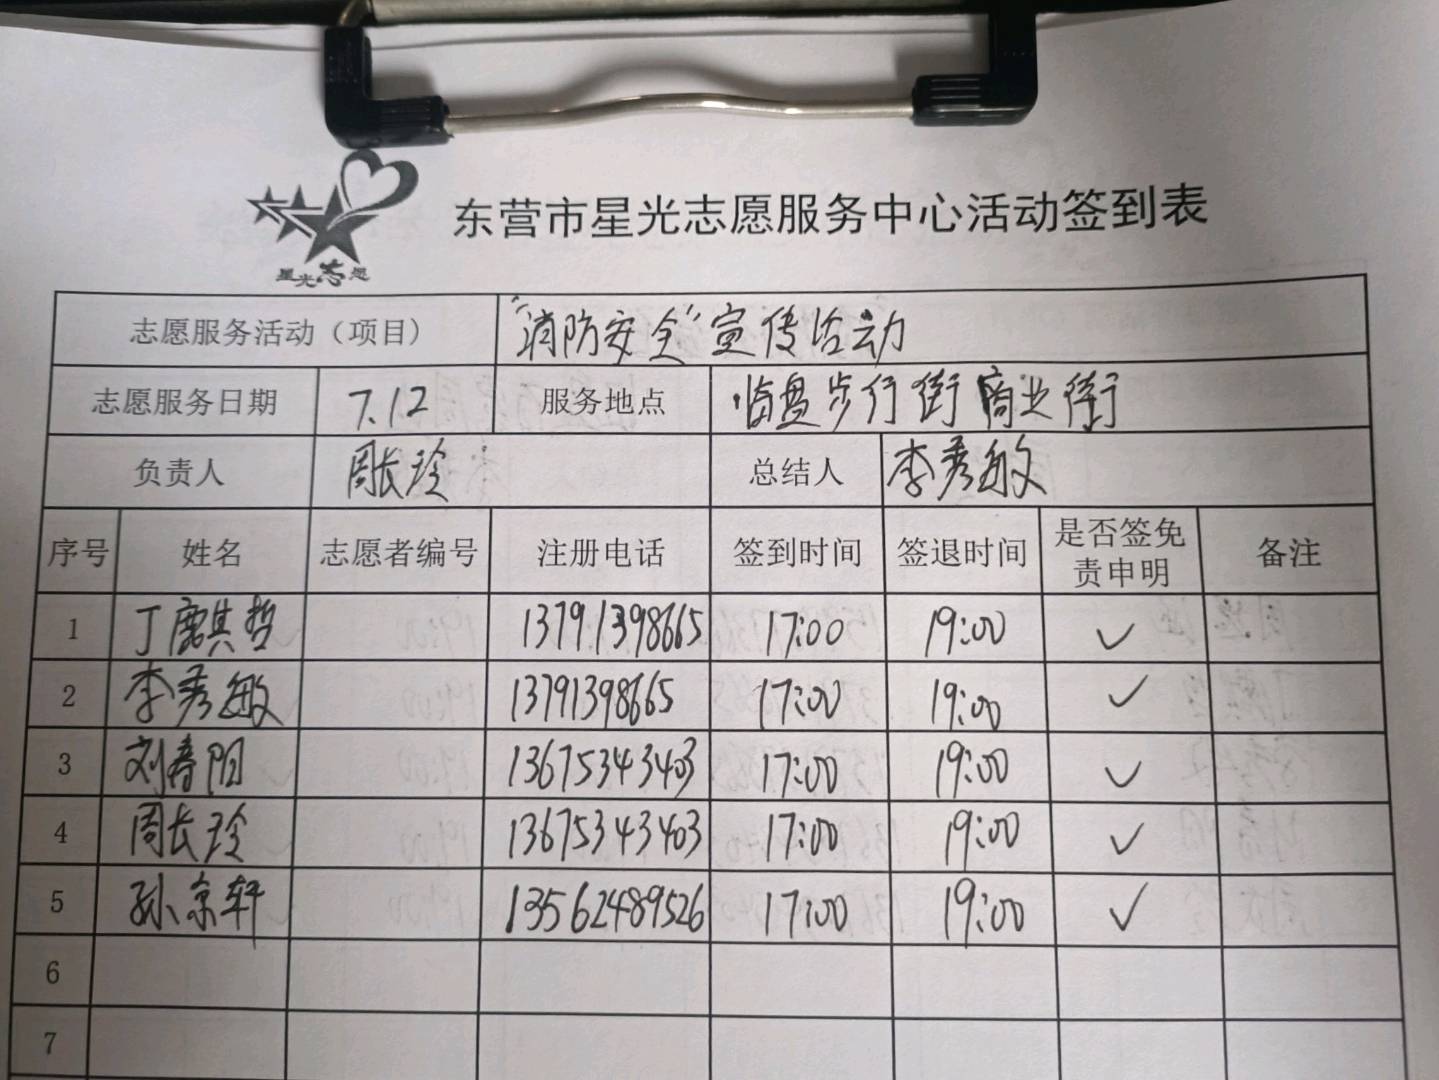 星光志愿
东营市星光志愿服务中心活动签到表
志愿服务活动（项目） “消防安全”宣传活动
志愿服务日期 7.12 服务地点 临盘步行街商业街
负责人 周长玲 总结人 李秀敏
序号 姓名 志愿者编号 注册电话 签到时间 签退时间 是否签免责申明 备注
1 丁麒其哲 13791398665 17:00 19:00 ✓
2 李秀敏 13791398665 17:00 19:00 ✓
3 刘春阳 13675343403 17:00 19:00 ✓
4 周长玲 13675343403 17:00 19:00 ✓
5 孙京轩 13562489526 17:00 19:00 ✓
6
7